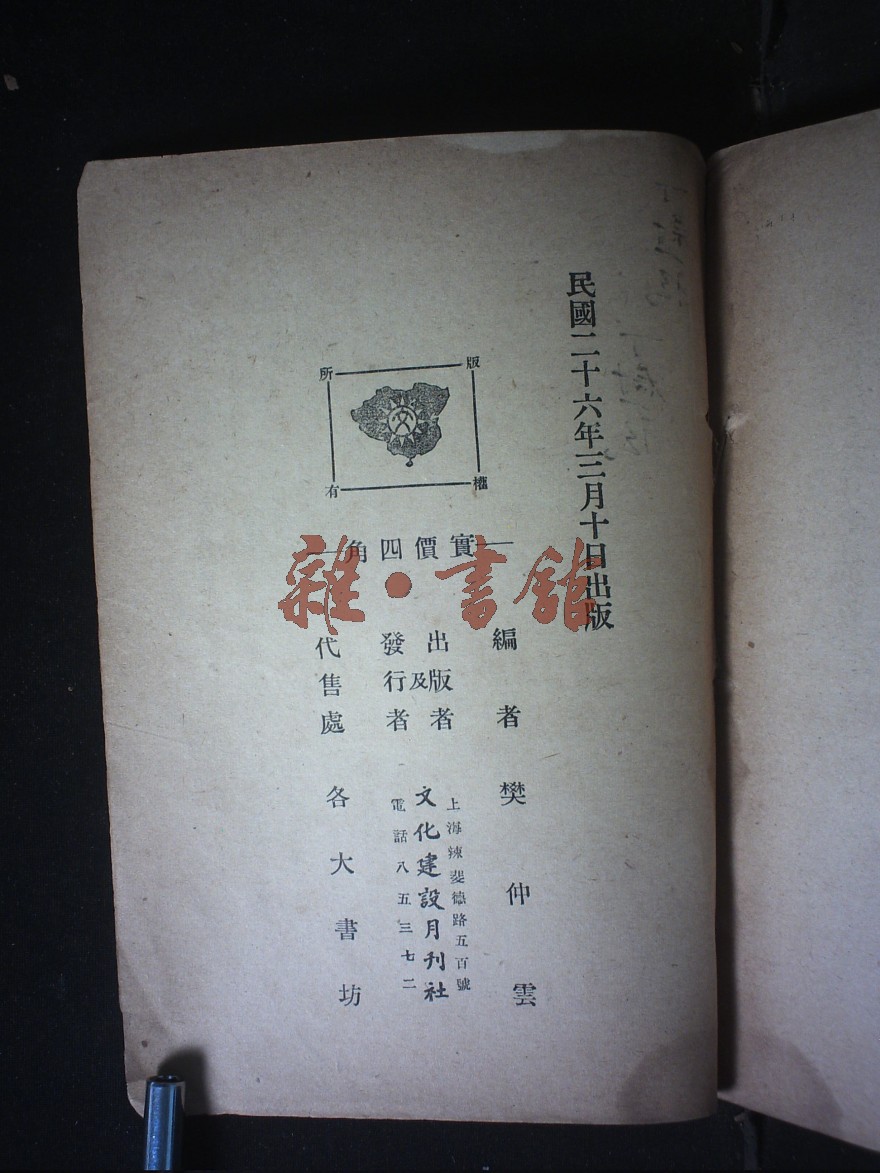 民國二十六年三月十日出版
版權所有
文
實價四角
編者 樊仲雲
出版者
及
發行者
上海辣斐德路五百號
文化建設月刊社
電話八五三七二
代售處 各大書坊
雜·書館